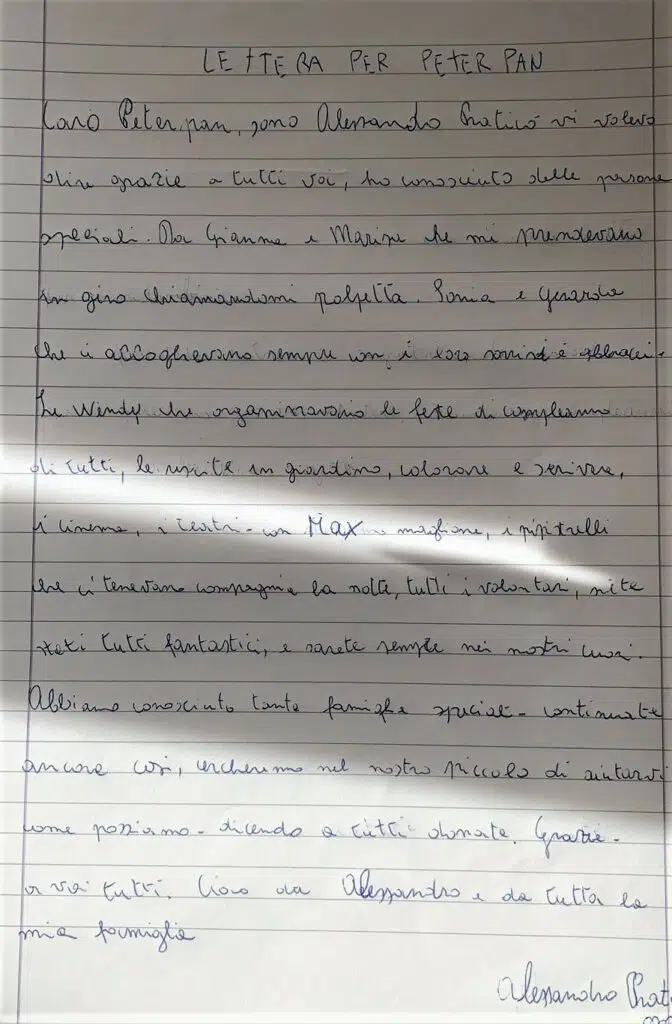 LETTERA PER PETER PAN
Caro Peter pan, sono Alessandro Praticò vi volevo
dire grazie a tutti voi, ho conosciuto delle persone
speciali. Da Gianna e Marina che mi prendevano
in giro chiamandomi polpetta. Sonia e Gerardo
che ci accoglievano sempre con i loro sorrisi e abbracci.
Le Wendy che organizzavano le feste di compleanno
di tutti, le uscite in giardino, colorare e scrivere,
i cinema, i teatri con Max maglione, i pipitrelli
che ci tenevano compagnia la notte, tutti i volontari, siete
stati tutti fantastici, e sarete sempre nei nostri cuori.
Abbiamo conosciuto tante famiglie speciali - continuate
ancora così, cercheremo nel nostro piccolo di aiutarvi
come possiamo - dicendo a tutti donate. Grazie -
a voi tutti. Ciao da Alessandro e da tutta la
mia famiglia
Alessandro Prat